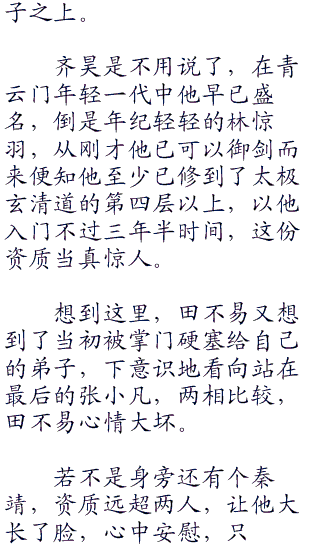 子之上。
齐昊是不用说了，在青
云门年轻一代中他早已盛
名，倒是年纪轻轻的林惊
羽，从刚才他已可以御剑而
来便知他至少已修到了太极
玄清道的第四层以上，以他
入门不过三年半时间，这份
资质当真惊人。
想到这里，田不易又想
到了当初被掌门硬塞给自己
的弟子，下意识地看向站在
最后的张小凡，两相比较，
田不易心情大坏。
若不是身旁还有个秦
靖，资质远超两人，让他大
长了脸，心中安慰，只